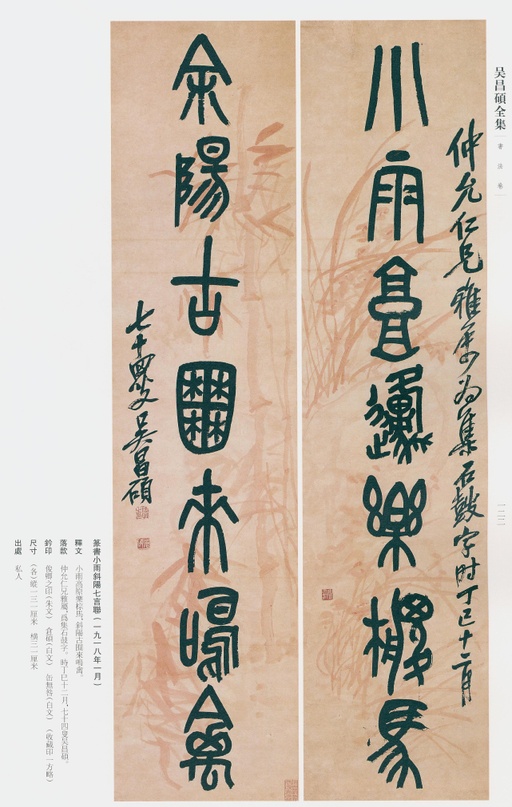 吴昌碩全集
書法卷
一二二
仲允仁兄雅屬為集石鼓字時丁巳十二月
小雨高原樂椶馬
余陽古囿來鳴禽
七十四叟吴昌碩
篆書小雨斜陽七言聯（一九一八年一月）
釋文　小雨高原樂棕馬，斜陽古囿來鳴禽。
落款　仲允仁兄雅屬，爲集石鼓字。時丁巳十二月，七十四叟吴昌碩。
鈐印　俊卿之印（朱文）　倉碩（白文）　缶無咎（白文）　（收藏印一方略）
尺寸　（各）縱一三一厘米　橫三一厘米
出處　私人